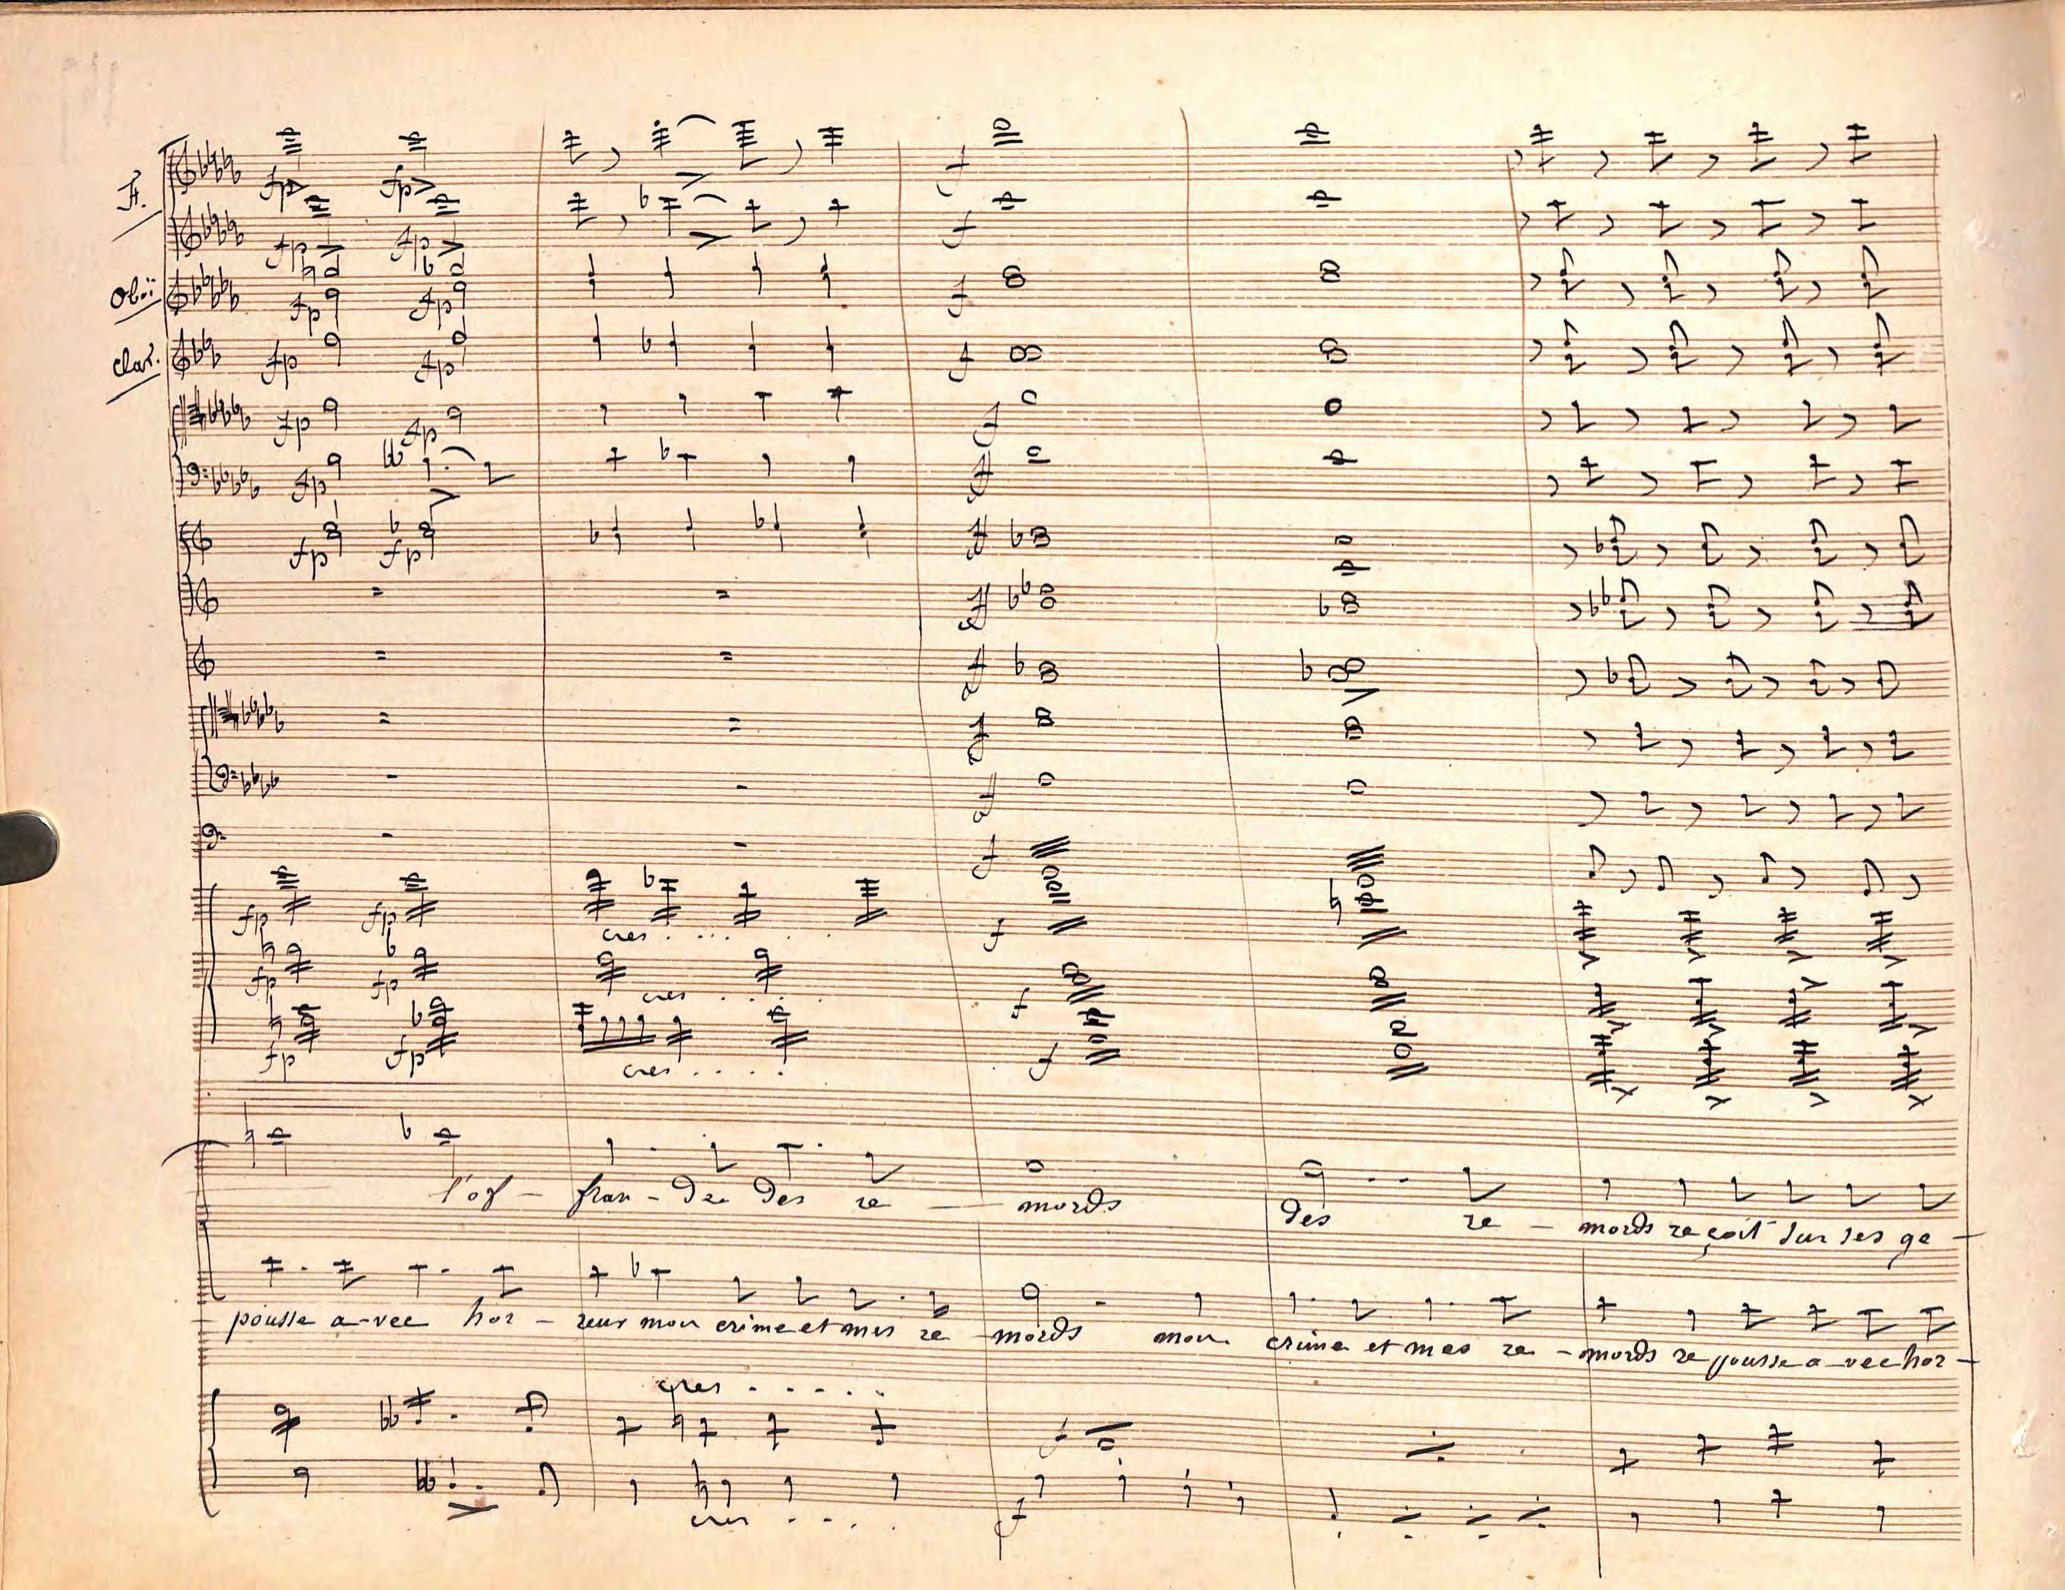 fl.
fp> fp> f
fp> fp> f
Oboï fp fp f
clar. fp fp f
fp fp f
fp f
fp fp f
f
f
f
f
f
fp fp cres.... f
fp fp cres.... f
fp fp cres.... f
l'of - fran - de des re - mords des re - mords reçoit sur ses ge -
pousse a-vec hor - reur mon crime et mes re - mords mon crime et mes re - mords repousse a-vec hor -
cres...... f
cres.... f